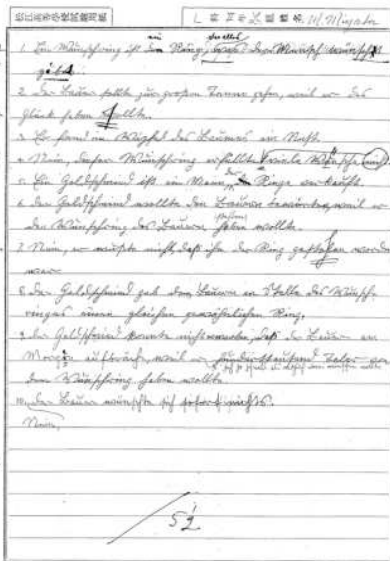 松江高等學校試驗用紙 科 年 組 姓名 M. Miyata
1. Ein Wünschring ist ein Ring, der Wunsch
2. Der Bauer sollte zur großen Tanne gehen, weil er das
Glück haben sollte.
3. Er fand im Wipfel des Baumes ein Nest.
4. Nein, dieser Wünschring erfüllte viele Wünsche
5. Ein Goldschmied ist ein Mann, der Ringe verkauft.
6. Der Goldschmied wollte den Bauern bewirten, weil er
den Wünschring des Bauern haben wollte.
7. Nein, er wußte nicht, daß ihm der Ring gestohlen worden
war.
8. Der Goldschmied gab dem Bauern an Stelle des Wünsch-
ringes einen gleichen gewöhnlichen Ring.
9. Der Goldschmied konnte nicht daß der Bauer am
Morgen aufbrach, weil er hunderttausend Taler von
dem Wünschring haben wollte.
10. Der Bauer wünschte sich sofort nichts.
Nein,
52